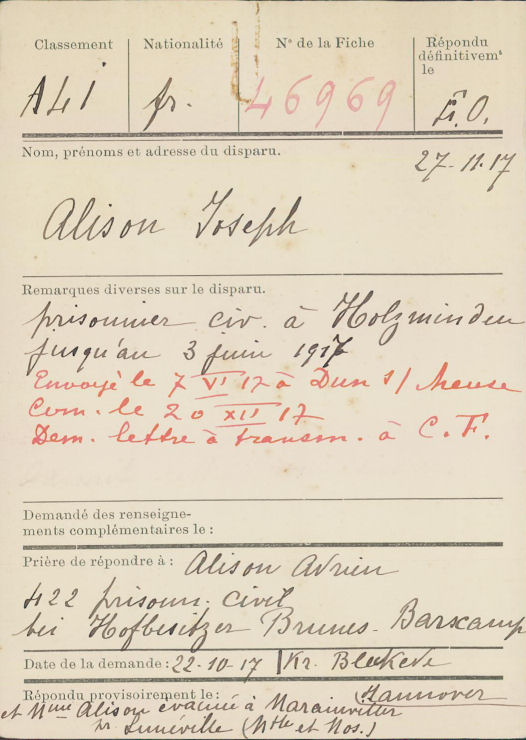 Classement Nationalité N° de la Fiche Répondu définitivem^t le
A41 fr. 46969 F.O.
Nom, prénoms et adresse du disparu. 27-11-17
Alison Joseph
Remarques diverses sur le disparu.
prisonnier civ. à Holzminden
jusqu'au 3 juin 1917
Envoyé le 7 VI 17 à Dun s/ Meuse
Com. le 20 XII 17
Dem. lettre à transm. à C. F.
Demandé des renseigne-
ments complémentaires le :
Prière de répondre à : Alison Adrien
422 prisonn. civil
bei Hofbesitzer Brunes-Barscamp
Date de la demande : 22-10-17 Kr. Bleckede
Répondu provisoirement le : Hannover
et Mme Alison évacuée à Marainviller
Lunéville (Mthe et Mos.)